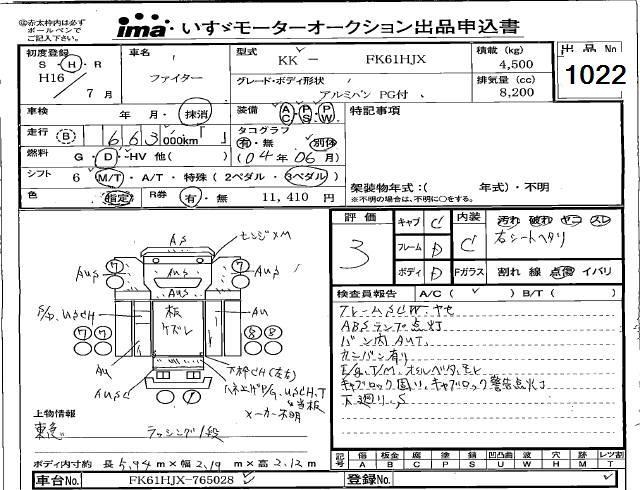 ◎赤太枠内は必ず
ボールペンで
ご記入下さい。
ima いすゞモーターオークション出品申込書
初度登録
S・H・R
H16
7 月
車名
ファイター
型式
KK － FK61HJX
グレード・ボディ形状
アルミバン PG付
積載 (kg)
4,500
排気量 (cc)
8,200
出品 No
1022
車検 年 月・抹消
装備 AC PS PW
特記事項
走行 B 663 000km
タコグラフ
有・無 別体
(04年 06月)
燃料 G・D・HV 他( )
シフト 6 M/T・A/T・特殊 (2ペダル・3ペダル)
色 指定
R券 有・無 11,410 円
架装物年式:( 年式)・不明
※不明の場合は、不明に○をする。
評価
3
キャブ C
フレーム D
ボディ D
内装 C
汚れ 破れ ヤニ スレ
右シートヘタリ
Fガラス 割れ 線 点傷 イバリ
検査員報告 A/C ( ✓ ) B/T ( )
フレームSCW、ヤセ
ABSランプ点灯
バン内AUT.
カンバン有り
E/G, T/M. オイルベタ、モレ
キャブロック固い、キャブロック警告点灯
下廻り、S
AS
センジ×M
AUS
AUS
AUS
AUS
AU
AU
AUSC
板
ケズレ
下枠CH(左右)
メーカー不明
上物情報
東急
ラッシング1段
ボディ内寸約 長 5.94 m × 幅 2.19 m × 高 2.12 m
記号
傷 A
板金 B
腐 C
塗 P
錆 S
凹凸曲 U
波 W
穴 H
跡 M
レツ割 T
車台No. FK61HJX-765028
登録No.